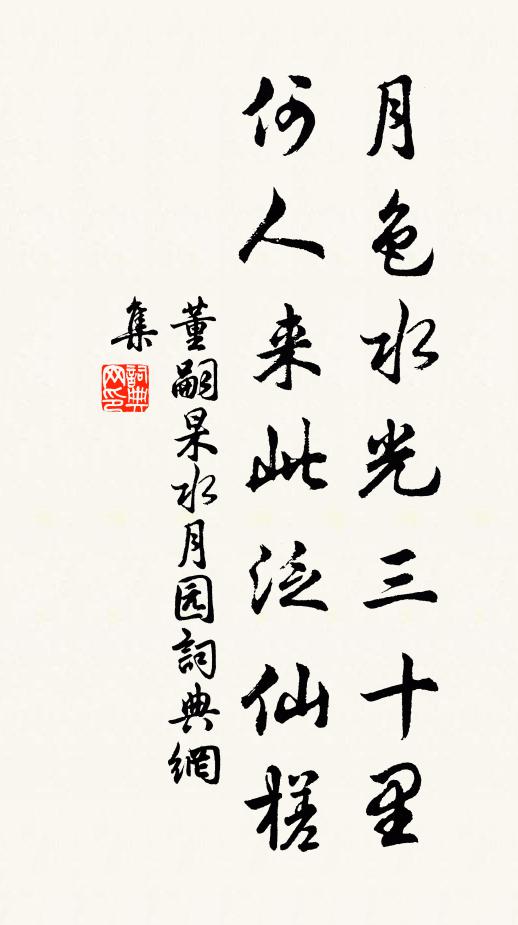 月色水光三十里
何人来此泛仙槎
董嗣杲水月园詞典網
集
詞典網印